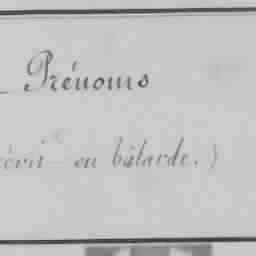 Prénoms
écrit en bâtarde.)